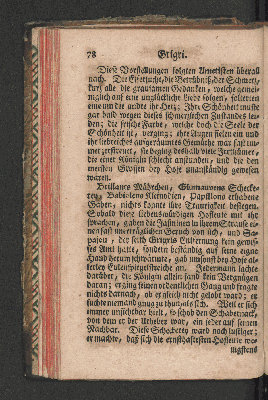 78 Grigri.
Diese Vorstellungen folgten Amatisten überall
nach. Die Eifersucht, die Betrübniß der Schmerz,
kurz alle die grausamen Gedanken, welche gemei-
niglich auf eine unglückliche Liebe folgen, folterten
eine um die andre ihr Herz; Ihre Schönheit mußte
gar bald wegen dieses schmerzlichen Zustandes lei-
den; die frische Farbe, welche doch die Seele der
Schönheit ist, vergieng; ihre Augen fielen ein und
ihr liebreiches aufgeräumtes Gemüthe war fast im-
mer zerstreuet, sie begieng deshalb viele Irrthümer,
die einer Königin schlecht anstunden, und die den
meisten Grossen der Hofe unanständig gewesen
waren.
Brillante Mährchen, Schecke-
rey, Babiolens Kleinodien, Papillons erhabene
Gaben, nichts konnte ihre Traurigkeit besiegen.
Sobald diese liebenswürdigen Hofleute mit ihr
sprachen, gaben die Jasminen in ihrem Strausse ei-
nen fast unerträglichen Geruch von sich, und Sa-
pajou, der seit Grigris Entfernung kein gewis-
ses Amt hatte, sondern beständig auf seine eigne
Hand herum schwärmte, gab umsonst bey Hofe al-
lerley Eulenspiegelstreiche an. Jedermann lachte
darüber, die Königin allein fand kein Vergnügen
daran; er gieng seinen ordentlichen Gang und fragte
nichts darnach, ob er gleich nicht gelobt ward; er
suchte niemand genug zu thun, als sich. Weil er sich
immer unsichtbar hielt, so schob den Schabernack,
von dem er der Urheber war, ein jeder auf seinen
Nachbar. Diese Schäckerey ward noch lustiger;
er machte, daß sich die ernsthaftesten Hofleute we-
nigstens